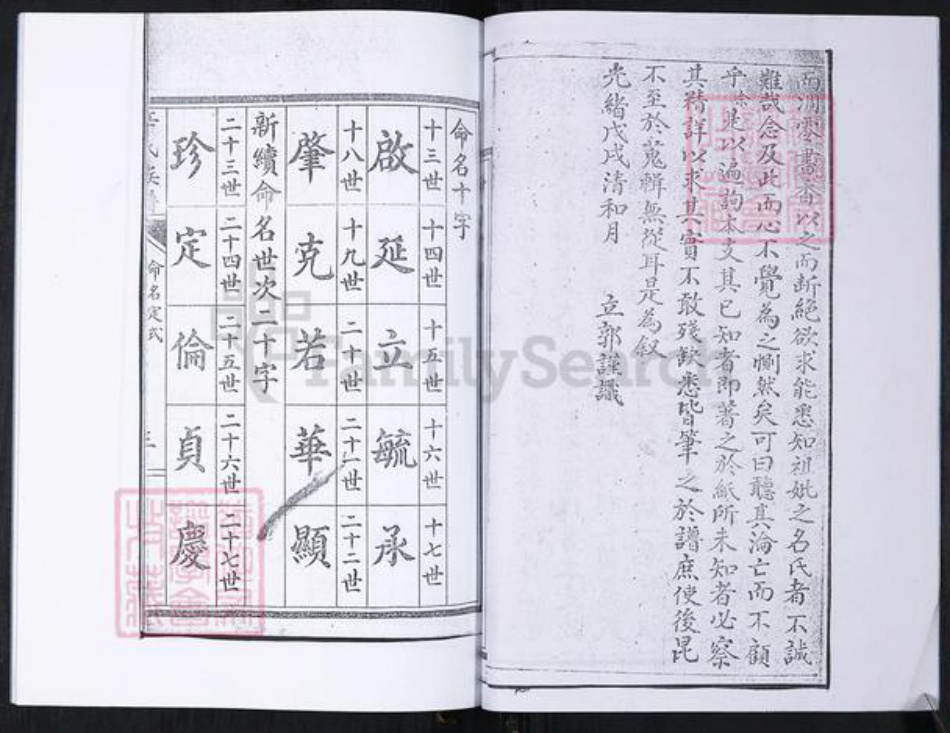 而凋零盡喬以之而斷絕欲求能悉知祖妣之名氏者不誠
難哉念及此而心不覺為之惻然矣可曰聽其淪亡而不顧
乎是以遍詢本支其已知者即著之於紙所未知者必察
其精詳以求其實不敢殘缺悉皆筆之於譜庶使後昆
不至於蒐輯無從耳是為叙
光緒戊戌清和月 立郭謹識
命名十字
十三世 十四世 十五世 十六世 十七世
啟 延 立 毓 承
十八世 十九世 二十世 二十一世 二十二世
肇 克 若 華 顯
新續命名世次二十字
二十三世 二十四世 二十五世 二十六世 二十七世
珍 定 倫 貞 慶
氏族譜 命名定式 三
FamilySearch